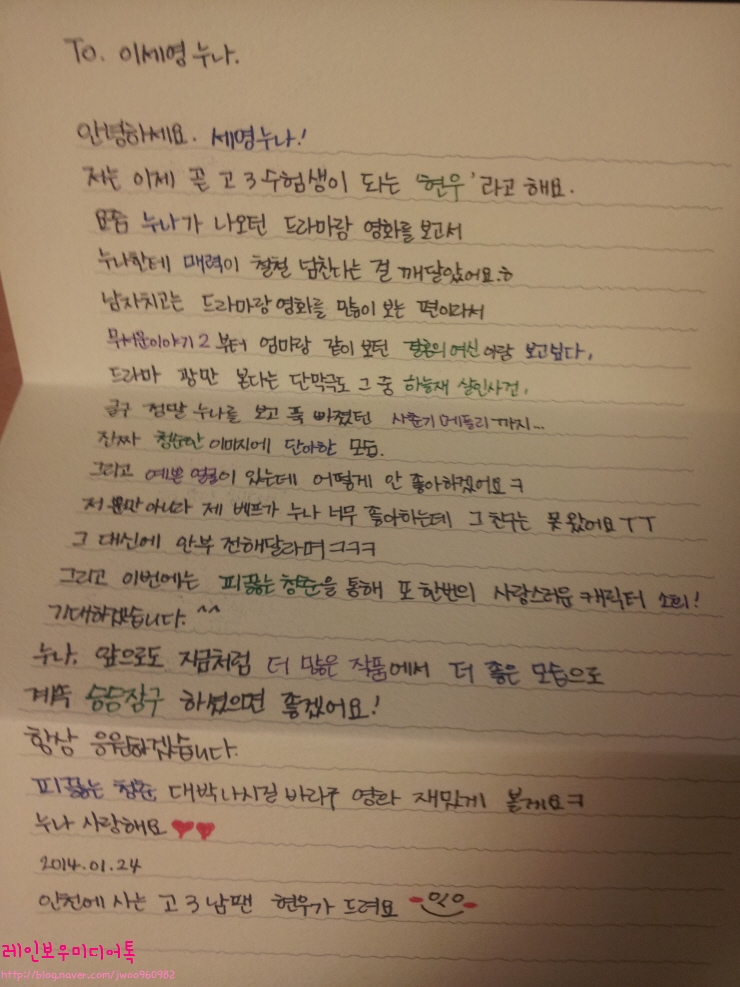 To. 이세영누나.
안녕하세요. 세영누나!
저는 이제 곧 고3수험생이 되는 '현우'라고 해요.
요즘 누나가 나오던 드라마랑 영화를 보고서
누나한테 매력이 철철 넘친다는 걸 깨달았어요.ㅎ
남자치고는 드라마랑영화를 많이 보는 편이라서
무서운이야기2 부터 엄마랑 같이 보던 결혼의여신 이랑 보고싶다,
드라마 광만 본다는 단막극도 그 중 하늘재 살인사건,
글구 정말 누나를 보고 푹 빠졌던 사춘기메들리까지...
진짜 청순한 이미지에 단아한 모습.
그리고 예쁜 얼굴이 있는데 어떻게 안 좋아하겠어요ㅋ
저 뿐만 아니라 제 베프가 누나 너무 좋아하는데 그 친구는 못왔어요ㅜㅜ
그 대신에 안부 전해달라며ㅋㅋㅋ
그리고 이번에는 피끓는 청춘을 통해 또 한번의 사랑스러운 캐릭터 소희!
기대하겠습니다. ^^
누나. 앞으로도 지금처럼 더 많은 작품에서 더 좋은 모습으로
계속 승승장구 하셨으면 좋겠어요!
항상 응원하겠습니다.
피끓는 청춘 대박나시길 바라구 영화 재밌게 볼게요ㅋ
누나 사랑해요♥♥
2014.01.24
인천에 사는 고3남팬 현우가 드려요
레인보우미디어톡
http://blog.naver.com/jwoo960982